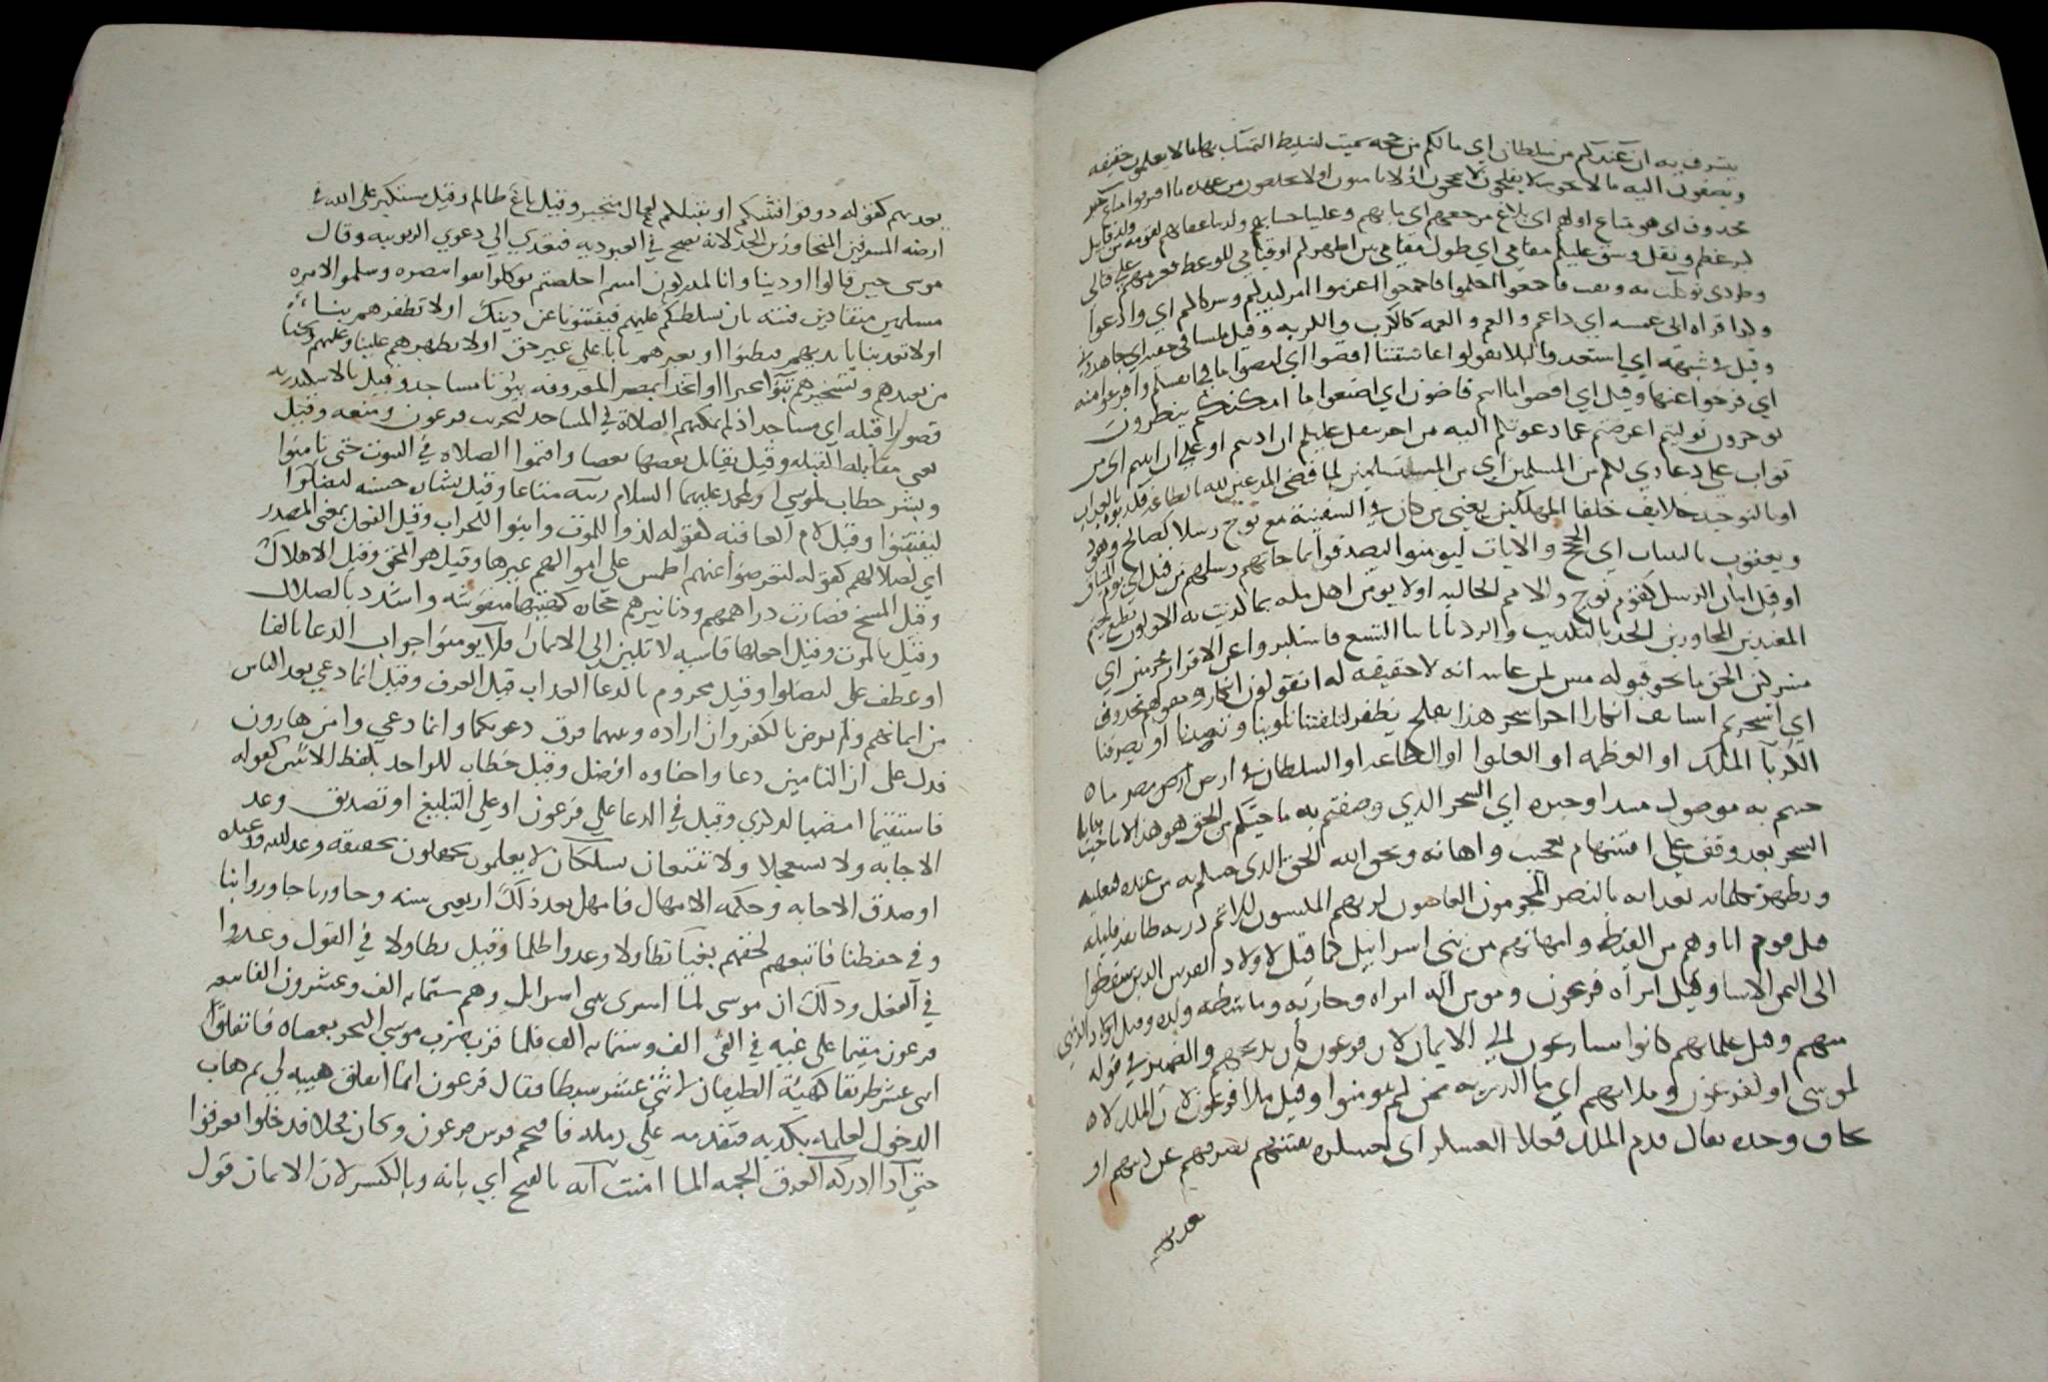 يشرف به ان عندكم من سلطان اي مالكم من حجه سميت لتسليط التمسك بها مالا يعلمون حقيقه
وتضيفون اليه مالا يجوز لا يفلحون لا ينجون اذ لا يامنون اولا يخلصون من عهده ما افتروا متاع خبر
محذوف اي هو متاع اولهم اي بلاغ مرجعهم اي مابهم وعلينا حسابهم ولدينا عقابهم لقومه من ولد قابيل
كبر عظم وثقل وشق عليكم مقامي اي طول مقامي بين اظهركم او قيامي للوعظ
وطردي توكلت به وثقت فاجمعوا احكموا فاجمعوا اعزموا امركم كيدكم وشركاكم اي وادعوا
غمه اي داغم والغم والغمه كالكرب والكربه وقيل ملتبسا في خفيه اي جاهروني
وقيل في شبهة اي استعدوا لئلا تقولوا عاشقتنا اقضوا اي امضوا ما في انفسكم وافرغوا منه
اي فرغوا عنها وقيل اي اقضوا ما انتم قاضون اي اصنعوا ما امكنكم ينظرون
توخرون توليتم اعرضتم عما دعوتكم اليه من اجر جعل عليكم ان ادبتم او علي ان ابيتم اي من
ثواب على دعاي لكم من المسلمين اي من المستسلمين لما قضي المذعنين لله بالطاعه فكذبوه بالعذاب
او بالتوحيد خلايف خلفا المهلكين يعني من كان في السفينة مع نوح رسلا كصالح وهود
ويعقوب بالبينات اي الحجج والايات ليومنوا ليصدقوا بما جاتهم رسلهم من قبل اي يوم الميثاق
او قبل اتيان الرسل كقوم نوح والامم الخاليه اولا يومن اهل مكه بما كذبت به الاولون نطبع نختم
المعتدين المجاوزين الحد بالتكذيب والرد باياتنا التسع فاستكبروا عن الاقرار مجرمين اي
مشركين الحق ما يحق قبوله مبين لمن عاينه انه لا حقيقه له اتقولون انكار ومقولهم محذوف
اي اسحر استانف انكارا اخر اسحر هذا يفلح يظفر لتلفتنا تلوينا وتصدنا او تصرفنا
الكبريا الملك او العظمه او العلوا او الطاعه او السلطان في الارض ارض مصر ما
جيتم به موصول مبتدا وخبره اي السحر الذي وصفتم به ما جيتكم من الحق هو هذا لا ما جيتنا به اي
السحر بعد وقف على استفهام تعجب واهانه ويحق الله الحق الذي جا سلم به من عنده فيعليه
ويظهره بكلماته بعداته بالنصر المجرمون العاصون لربهم الملبسون للاثم ذريه طايفه قليله
قوم اباوهم من القبط وامهاتهم من بني اسرائيل كما قيل لاولاد الفرس الذين سقطوا
الى اليمن الابنا وقيل امرأه فرعون ومومن اله امراه وجاريه وماشطه
منهم وقيل غلمانهم كانوا يسارعون الي الايمان لان فرعون كان يذبحهم والضمير في قوله
لموسى او لفرعون وملايهم اي ملا الذريه ممن لم يومنوا وقيل ملا فرعون لان الملك لا
يخاف وحده يقال قدم الملك فحلا العسكر اي لعسكره يفتنهم يصرفهم عن دينهم او
يعذبهم
يعذبهم كقوله ذوقوا فتنتكم او يقتلهم لعال متجبر وقيل باغ ظالم وقيل مستكبر على الله في
ارضه المسرفين المتجاوزين الحد لانه يصح في العبوديه فتعدي الي دعوي الربوبيه وقال
موسى حين قالوا اوذينا وانا لمدركون اسلمتم اخلصتم توكلوا ثقوا بنصره وسلموا لامره
مسلمين منقادين فتنه بان تسلطهم عليهم فيفتنونا عن دينك اولا تظفرهم بنا
اولا تعذبنا بايديهم فيظنوا او بغيرهم بانا علي غير حق اولا تظهرهم علينا ونجنا
من تعبدهم وتسخيرهم تبوا تخيرا او اتخذا بمصر المعروفه بيوتا مساجد وقيل بالاسكندريه
قصورا قبله اي مساجد اذ لم يمكنهم الصلاة في المساجد لتخريب فرعون ومنعه وقيل
يعني مقابله القبله وقيل يقابل بعضها بعضا واقيموا الصلاه في البيوت حتى تامنوا
وبشر خطاب لموسى او لمحمد عليهما السلام زينه متاعا وقيل بشارة حسنه ليضلوا
ليفتتنوا وقيل لام العاقبه كقوله لدوا للموت وابنوا للخراب وقيل الفعل بمعنى المصدر
اي لضلالهم كقوله لتعرضوا عنهم اطمس على اموالهم غيرها وقيل هو المحق وقيل الاهلاك
وقيل المسخ فصارت دراهمهم ودنانيرهم حجاره كهيئتها منقوشه واشدد بالضلال
وقيل بالموت وقيل اجعلها قاسيه لا تلين الي الايمان فلا يومنوا جواب الدعا بالفا
او عطف على ليضلوا وقيل مجزوم بالدعا العذاب قيل الغرق وقيل انما دعي بعد الياس
من ايمانهم ولم يرض بالكفر وان اراده وبينهما فرق دعوتكما وانما دعي وامن هارون
فدل على ان التامين دعا واخفاوه افضل وقيل خطاب للواحد بلفظ الاثنين كقوله
فاستقيما امضيا لامري وقيل في الدعا علي فرعون او علي التبليغ او تصديق وعد
الاجابه ولا تستعجلا ولا تتبعان تسلكان لا يعلمون يجهلون تحقيقه وعد الله ووعيده
او صدق الاجابه وحكمه الامهال فامهل بعد ذلك اربعين سنه وجاوزنا جاوروا بنا
وفي حفظنا فاتبعهم لحقهم بغيا تطاولا وعدوا ظلما وقيل تطاولا في القول وعدوا
في الفعل وذلك ان موسى لما اسرى ببني اسرايل وهم ستمايه الف وعشرون الفا تبعه
فرعون مقيما على غيه في الفي الف وستمايه الف فلما قرب ضرب موسي البحر بعصاه فانفلق
اثني عشر طريقا كهيئة الطيقان لاثني عشر سبطا فقال فرعون انما انفلق هيبه لي ثم هاب
الدخول فتقدمه على رمكه فاقتحم فرس فرعون وكان فحلا فدخلوا فغرقوا
حتي اذا ادركه الغرق الجمه الما امنت انه بالفتح اي بانه وبالكسر لان الايمان قول